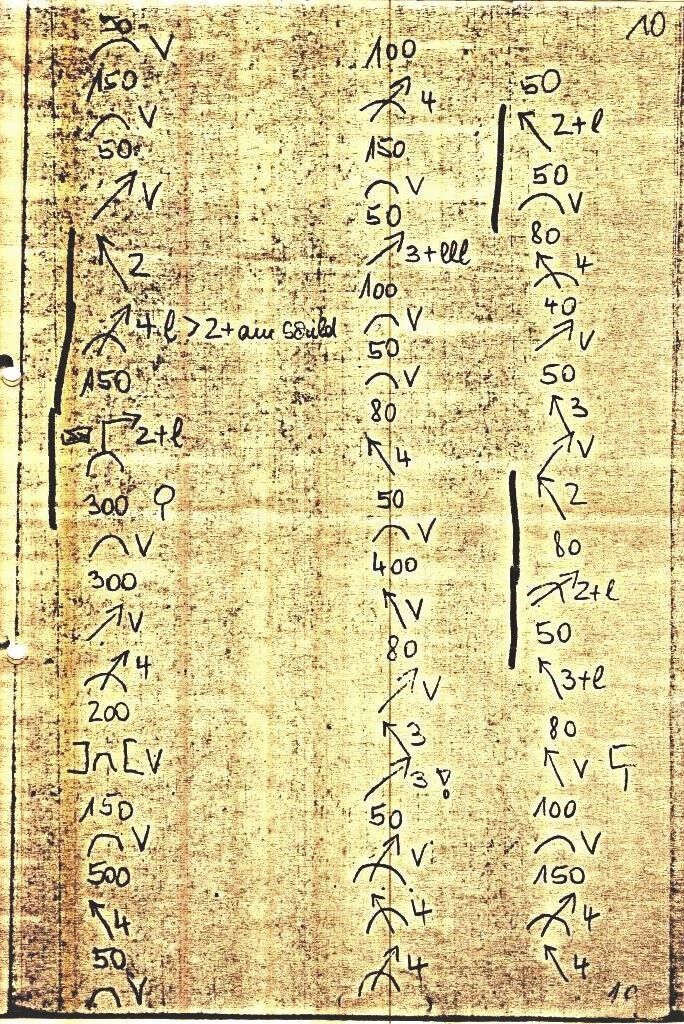 10
50
V
150
V
50
V
2
4-l > 2+
150
2+l
300
V
300
V
4
200
V
150
V
500
4
50
V
100
4
150
V
50
3+lll
100
V
50
V
80
4
50
V
400
V
80
V
3
3 !
50
V
4
4
50
2+l
50
V
80
4
40
V
50
3
V
2
80
2+l
50
3+l
80
V
100
V
150
4
4
10